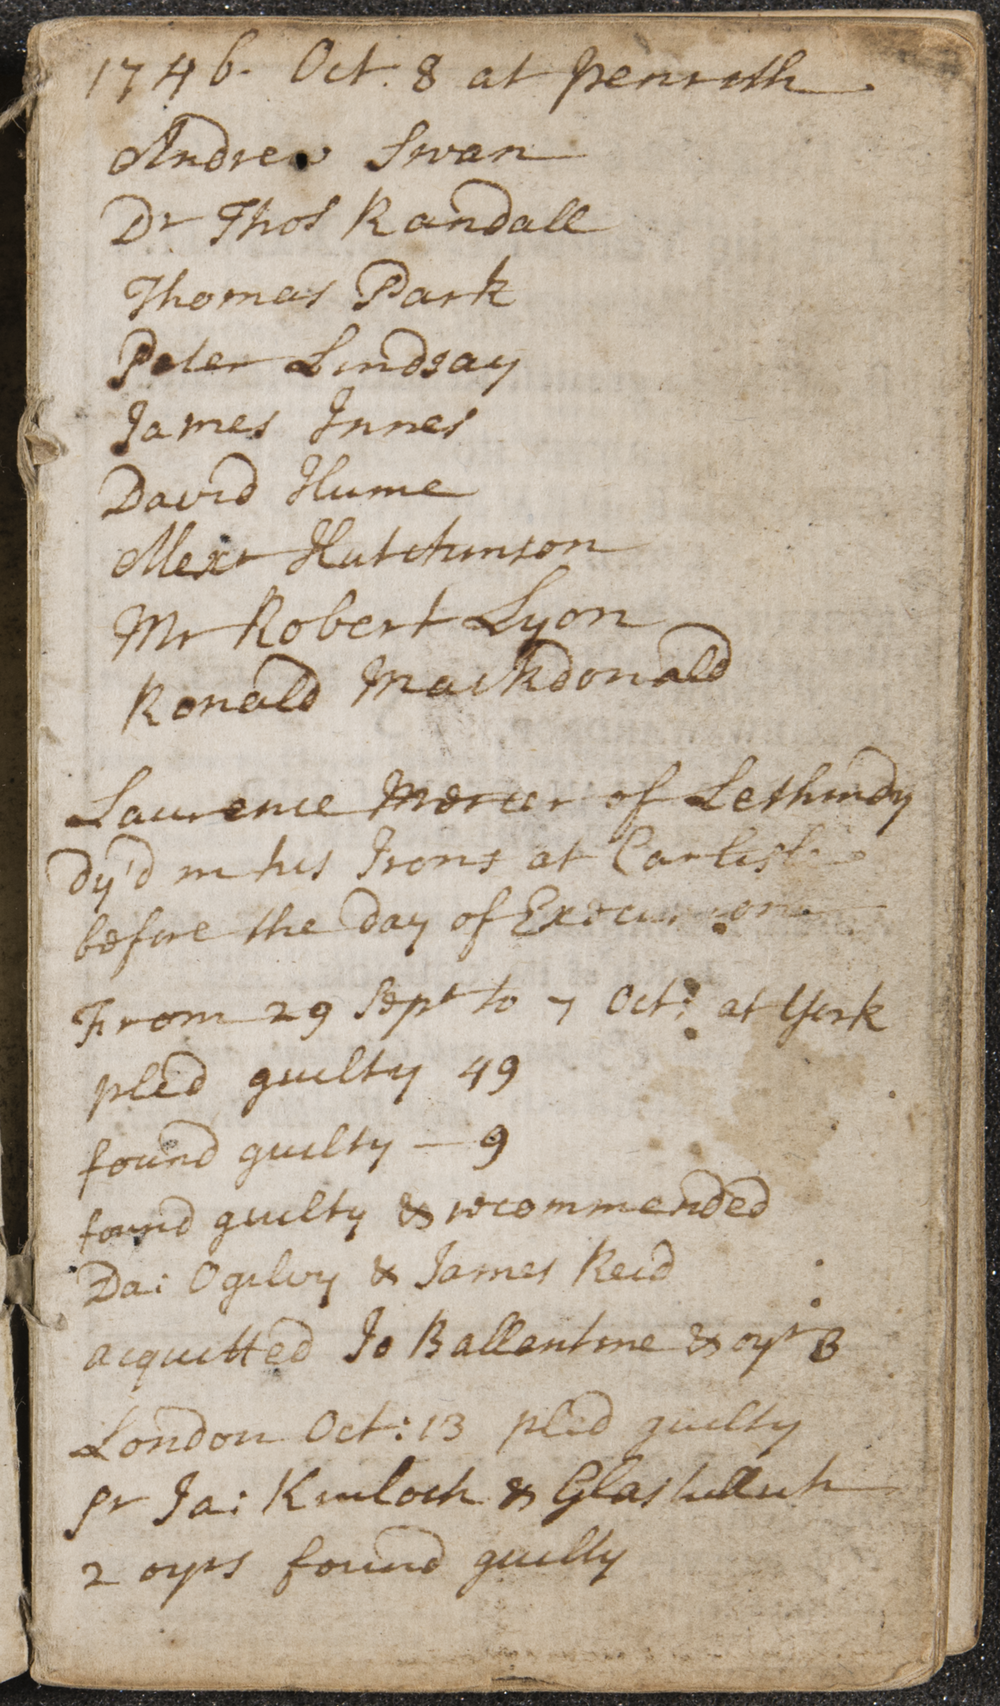 1746. Oct. 8 at penrith
Andrew Swan
Dr Thos Randall
Thomas Park
Peter Lindsay
James Innes
David Hume
Alexr Hutchinson
Mr Robert Lyon
Ronald Mackdonald
Laurence Mercer of Lethindy
Dy'd in his Irons at Carlisle
before the Day of Execution
From 29 Sept to 7 Oct: at York
pled guilty 49
found guilty — 9
found guilty & recommended
Da: Ogilvy & James Reid
acquitted Jo Ballentine & oyr
London Oct: 13 pled guilty
Sr Ja: Kinloch &
2 oyrs found guilty